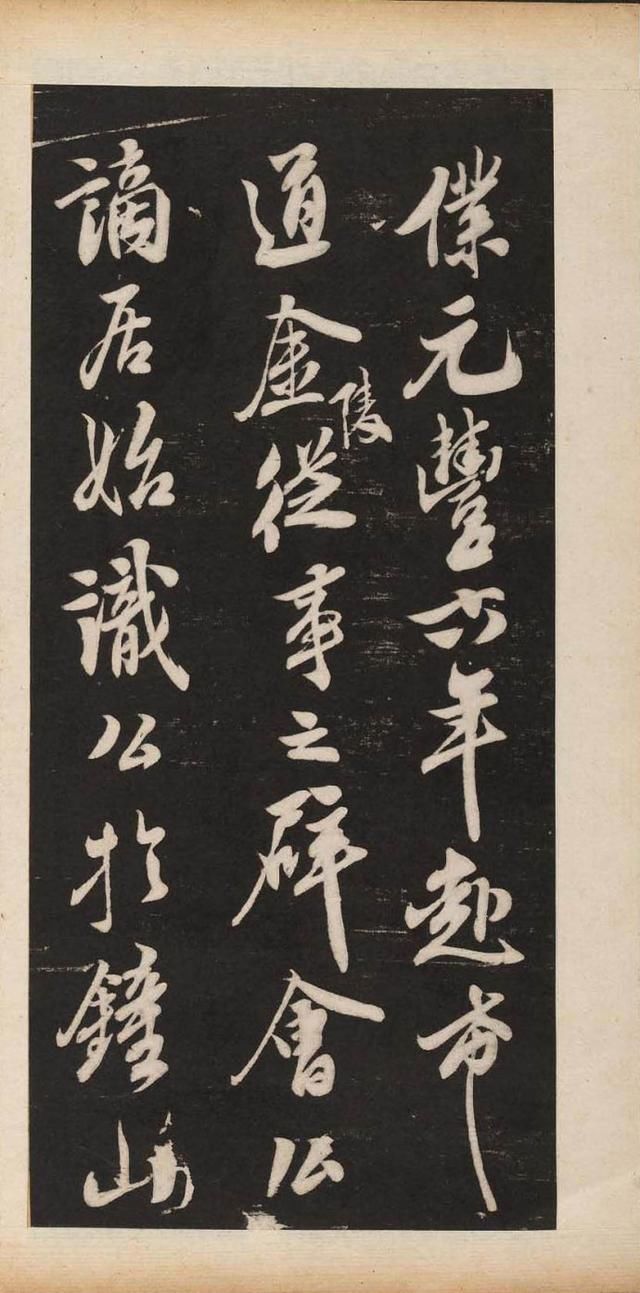 僕元豐六年赴希
道金陵從事之辟會公
謫居始識公於鐘山